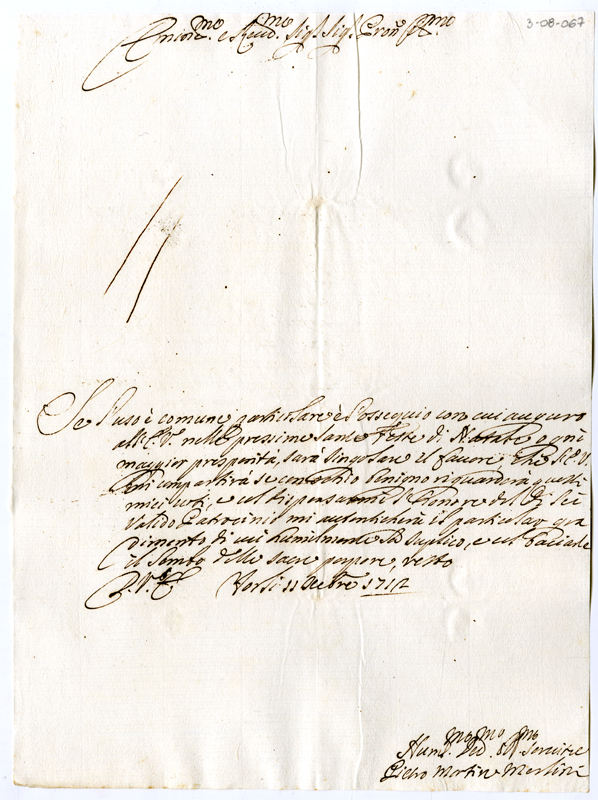 3-08-067
Emin.mo e Reud.mo Sig.r Sig.r Pron. mo
Se l'uso è comune, particolare è l'ossequio con cui auguro
all'E. V. nelle prossime Sante Feste di Natale ogni
maggior prosperità, sarà singolare il favore, che
mi impartirà se con occhio benigno riguarderà questi
miei voti, e col dispensarmi l'honore del di Lei
valido Patrocinio mi autenticherà il particolar gra
dimento di cui humilmente La supplico, e col baciarle
il lembo delle sacre porpore, resto
D. V. E. Forlì 11 Xcembre 1712
Hum.mo Ded.mo Obl.mo Servitre
Pietro Martire Merlini